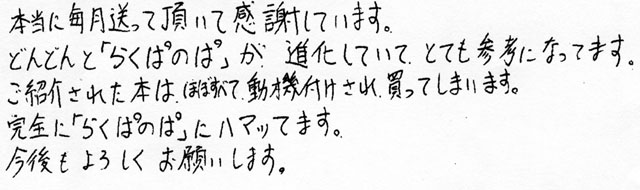 本当に毎月送って頂いて感謝しています。
どんどんと「らくぱのぱ」が 進化していて、とても参考になってます。
ご紹介された本は、ほぼすべて、動機付けされ、買ってしまいます。
完全に「らくぱのぱ」にハマッてます。
今後もよろしくお願いします。